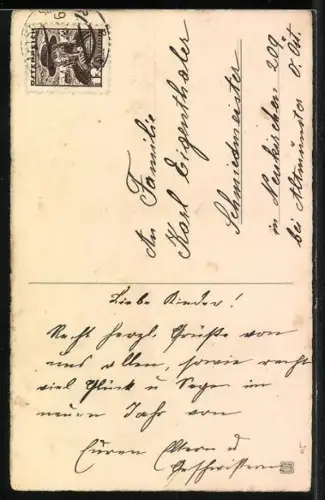 ÖSTERREICH
An Familie
Karl Eigenthaler
Schmiedmeister
in Neukirchen 209
bei Altmünster O. Öst.
Liebe Kinder!
Recht herzl. Grüße von
uns allen, sowie recht
viel Glück u Segen im
neuen Jahr von
Euren Eltern u
Geschwistern